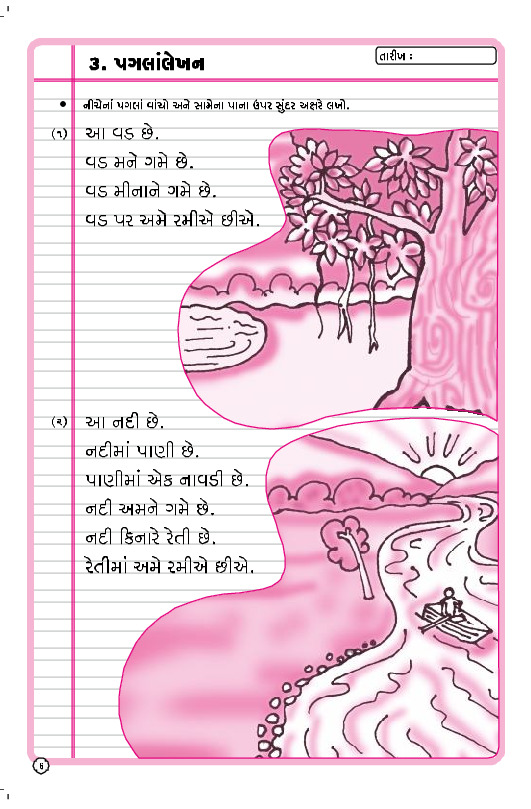 3. પગલાંલેખન
તારીખ :
● નીચેનાં પગલાં વાંચો અને સામેના પાના ઉપર સુંદર અક્ષરે લખો.
(૧) આ વડ છે.
વડ મને ગમે છે.
વડ મીનાને ગમે છે.
વડ પર અમે રમીએ છીએ.
(૨) આ નદી છે.
નદીમાં પાણી છે.
પાણીમાં એક નાવડી છે.
નદી અમને ગમે છે.
નદી કિનારે રેતી છે.
રેતીમાં અમે રમીએ છીએ.